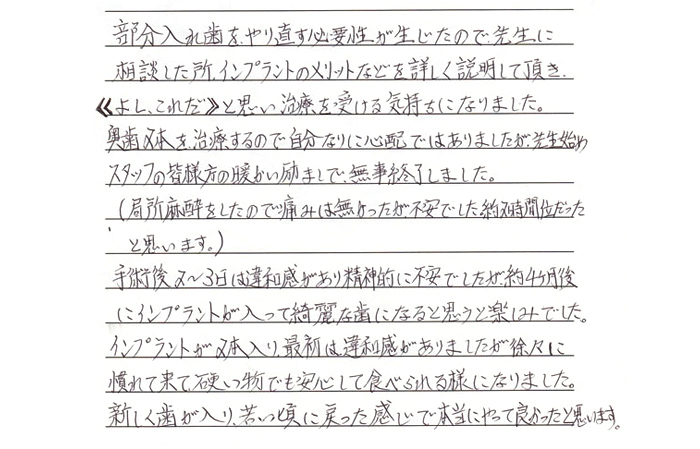 部分入れ歯を、やり直す必要性が生じたので、先生に
相談した所、インプラントのメリットなどを詳しく説明して頂き、
《よし、これだ》と思い治療を受ける気持ちになりました。
奥歯2本を、治療するので自分なりに心配ではありましたが、先生始め
スタッフの皆様方の暖かい励ましで、無事終了しました。
(局所麻酔をしたので痛みは無かったが、不安でした。約2時間位だった
と思います。)
手術後2〜3日は違和感があり精神的に不安でしたが、約4ヶ月後
にインプラントが入って綺麗な歯になると思うと楽しみでした。
インプラントが2本入り、最初は違和感がありましたが徐々に
慣れて来て、硬い物でも安心して食べられる様になりました。
新しく歯が入り、若い頃に戻った感じで本当にやって良かったと思います。